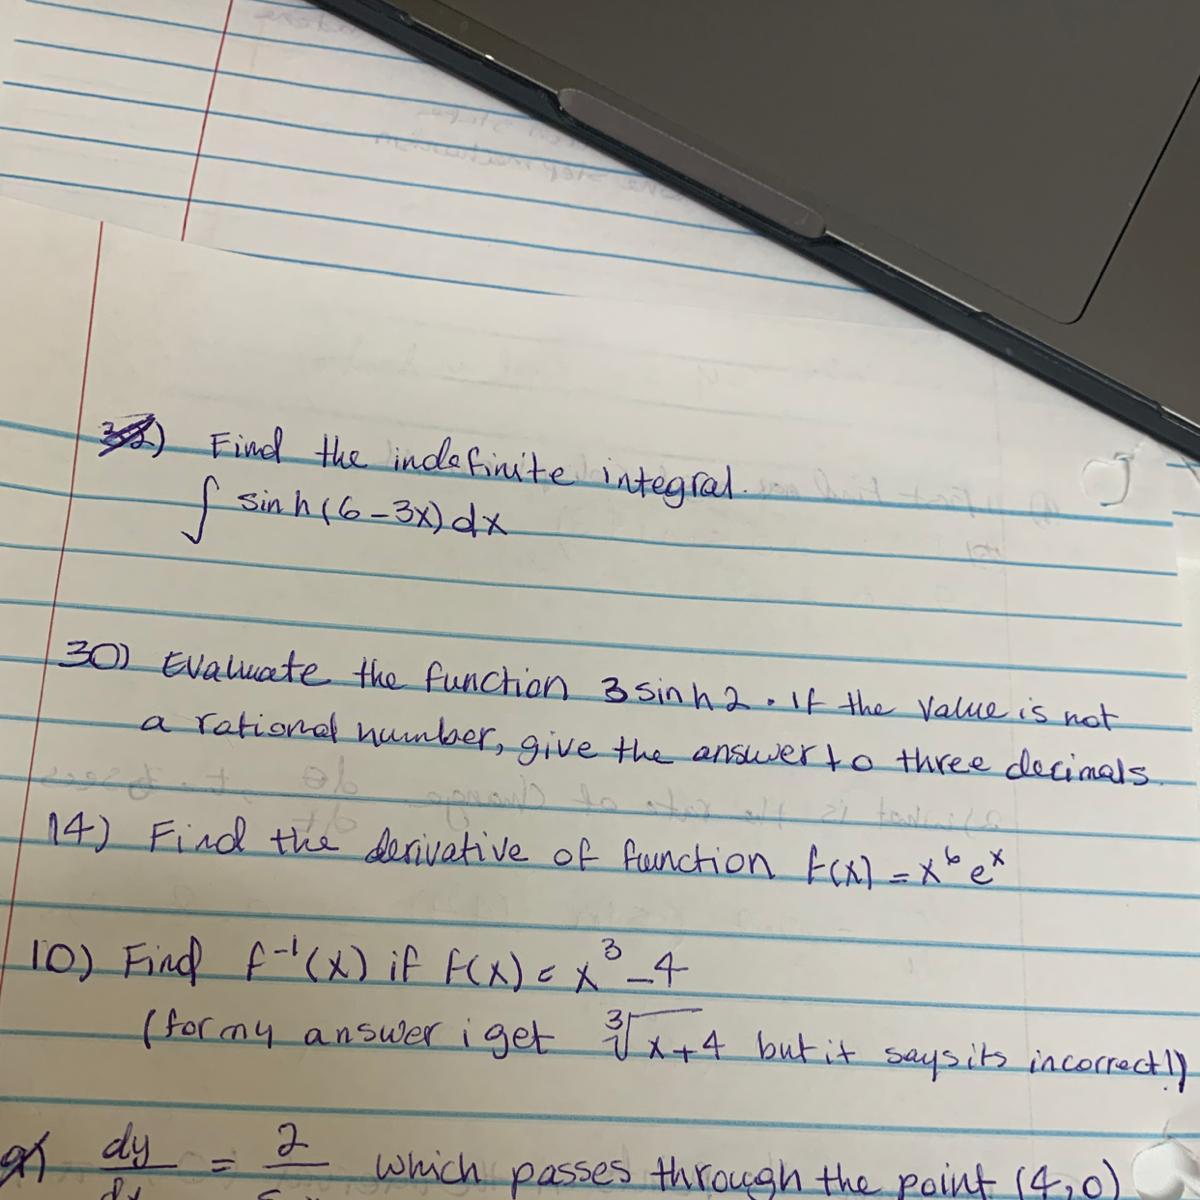 32) Find the indefinite integral.
∫ sinh(6-3x)dx
30) Evaluate the function 3 sinh 2. If the value is not
a rational number, give the answer to three decimals.
14) Find the derivative of function f(x) = x⁶eˣ
10) Find f⁻¹(x) if f(x) = x³-4
(for my answer i get ∛x+4 but it says its incorrect!)
dy = 2 which passes through the point (4,0)